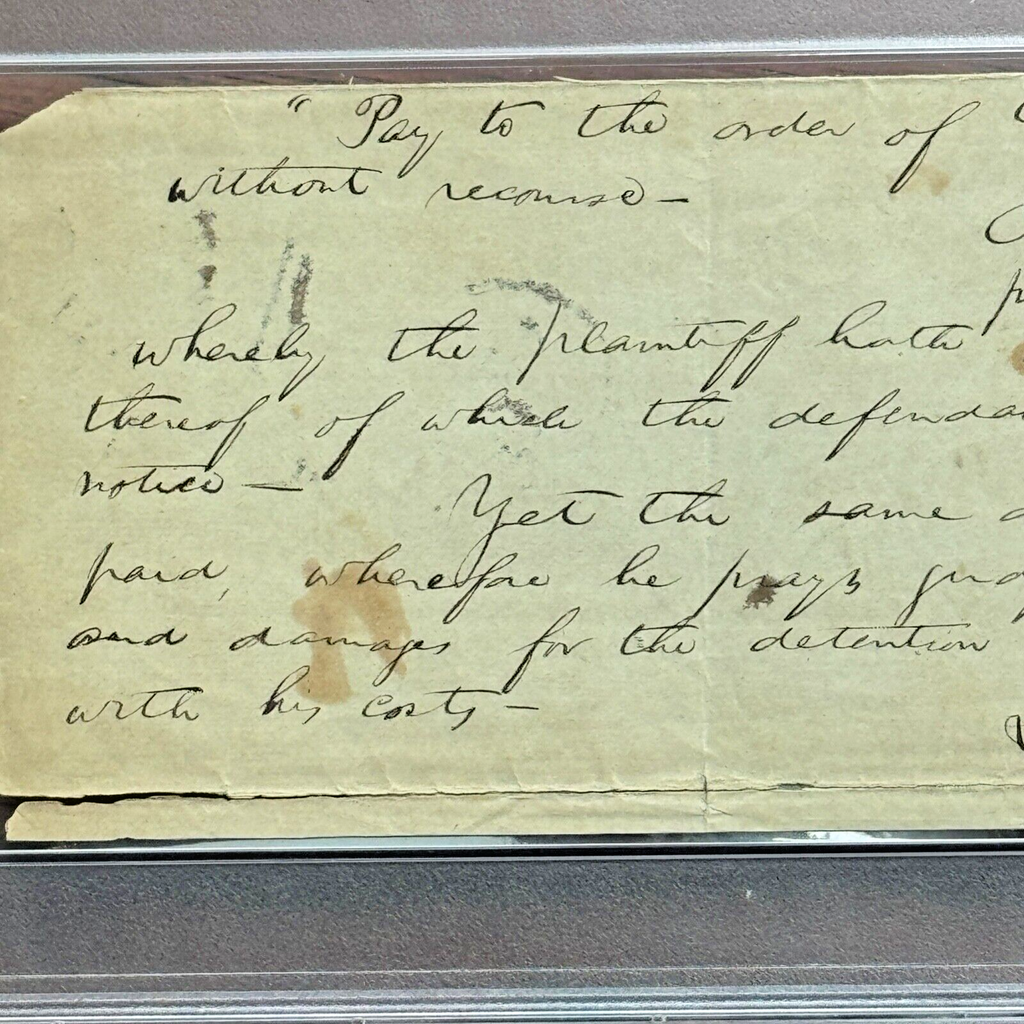 " Pay to the order of
without recourse —
whereby the plaintiff hath
thereof of which the defenda
notice —
Yet the same
paid, wherefore he prays judg
and damages for the detention
with his costs —